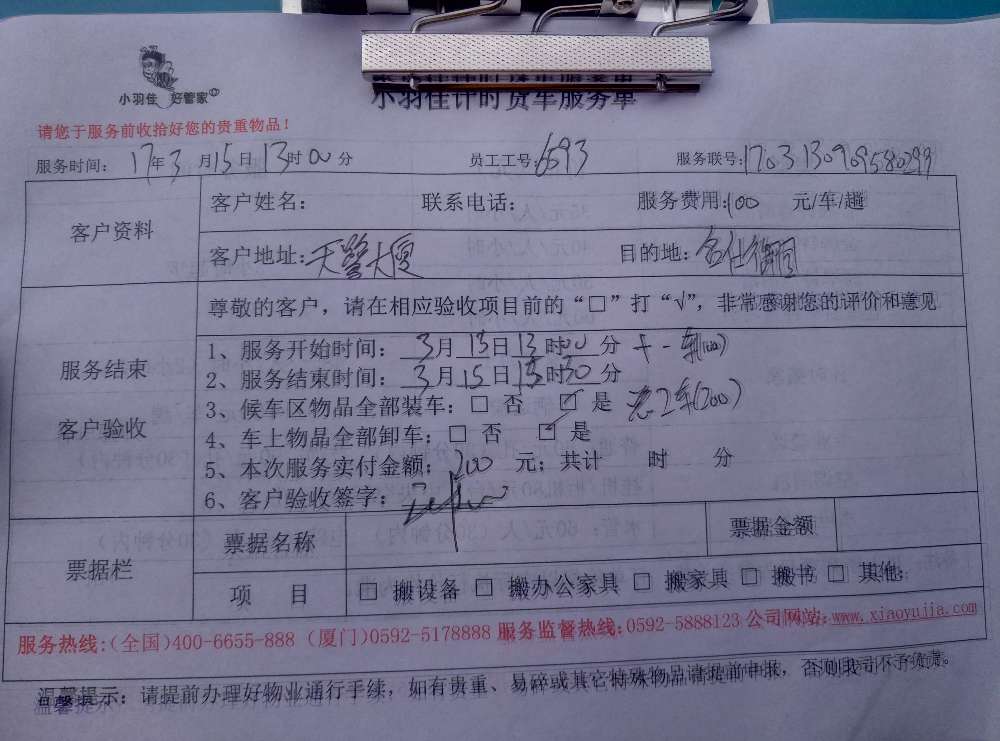 小羽佳 好管家
小羽佳计时货车服务单
请您于服务前收拾好您的贵重物品！
服务时间： 17年3月15日13时00分 员工工号：6693 服务联号：1703130909580299
客户资料
客户姓名： 联系电话： 服务费用：100 元/车/趟
客户地址：天鹭大厦 目的地：
尊敬的客户，请在相应验收项目前的“□”打“√”，非常感谢您的评价和意见
服务结束
客户验收
1、服务开始时间：3月15日13时00分 +一车(100)
2、服务结束时间：3月15日15时30分
3、候车区物品全部装车：□ 否 ☑ 是 2车(200)
4、车上物品全部卸车：□ 否 ☑ 是
5、本次服务实付金额：200 元；共计 时 分
6、客户验收签字：
票据栏
票据名称 票据金额
项 目 □ 搬设备 □ 搬办公家具 □ 搬家具 □ 搬书 □ 其他：
服务热线:(全国)400-6655-888 (厦门)0592-5178888 服务监督热线:0592-5888123 公司网站:www.xiaoyujia.com
温馨提示：请提前办理好物业通行手续，如有贵重、易碎或其它特殊物品请提前申报，否则我司不予负责。